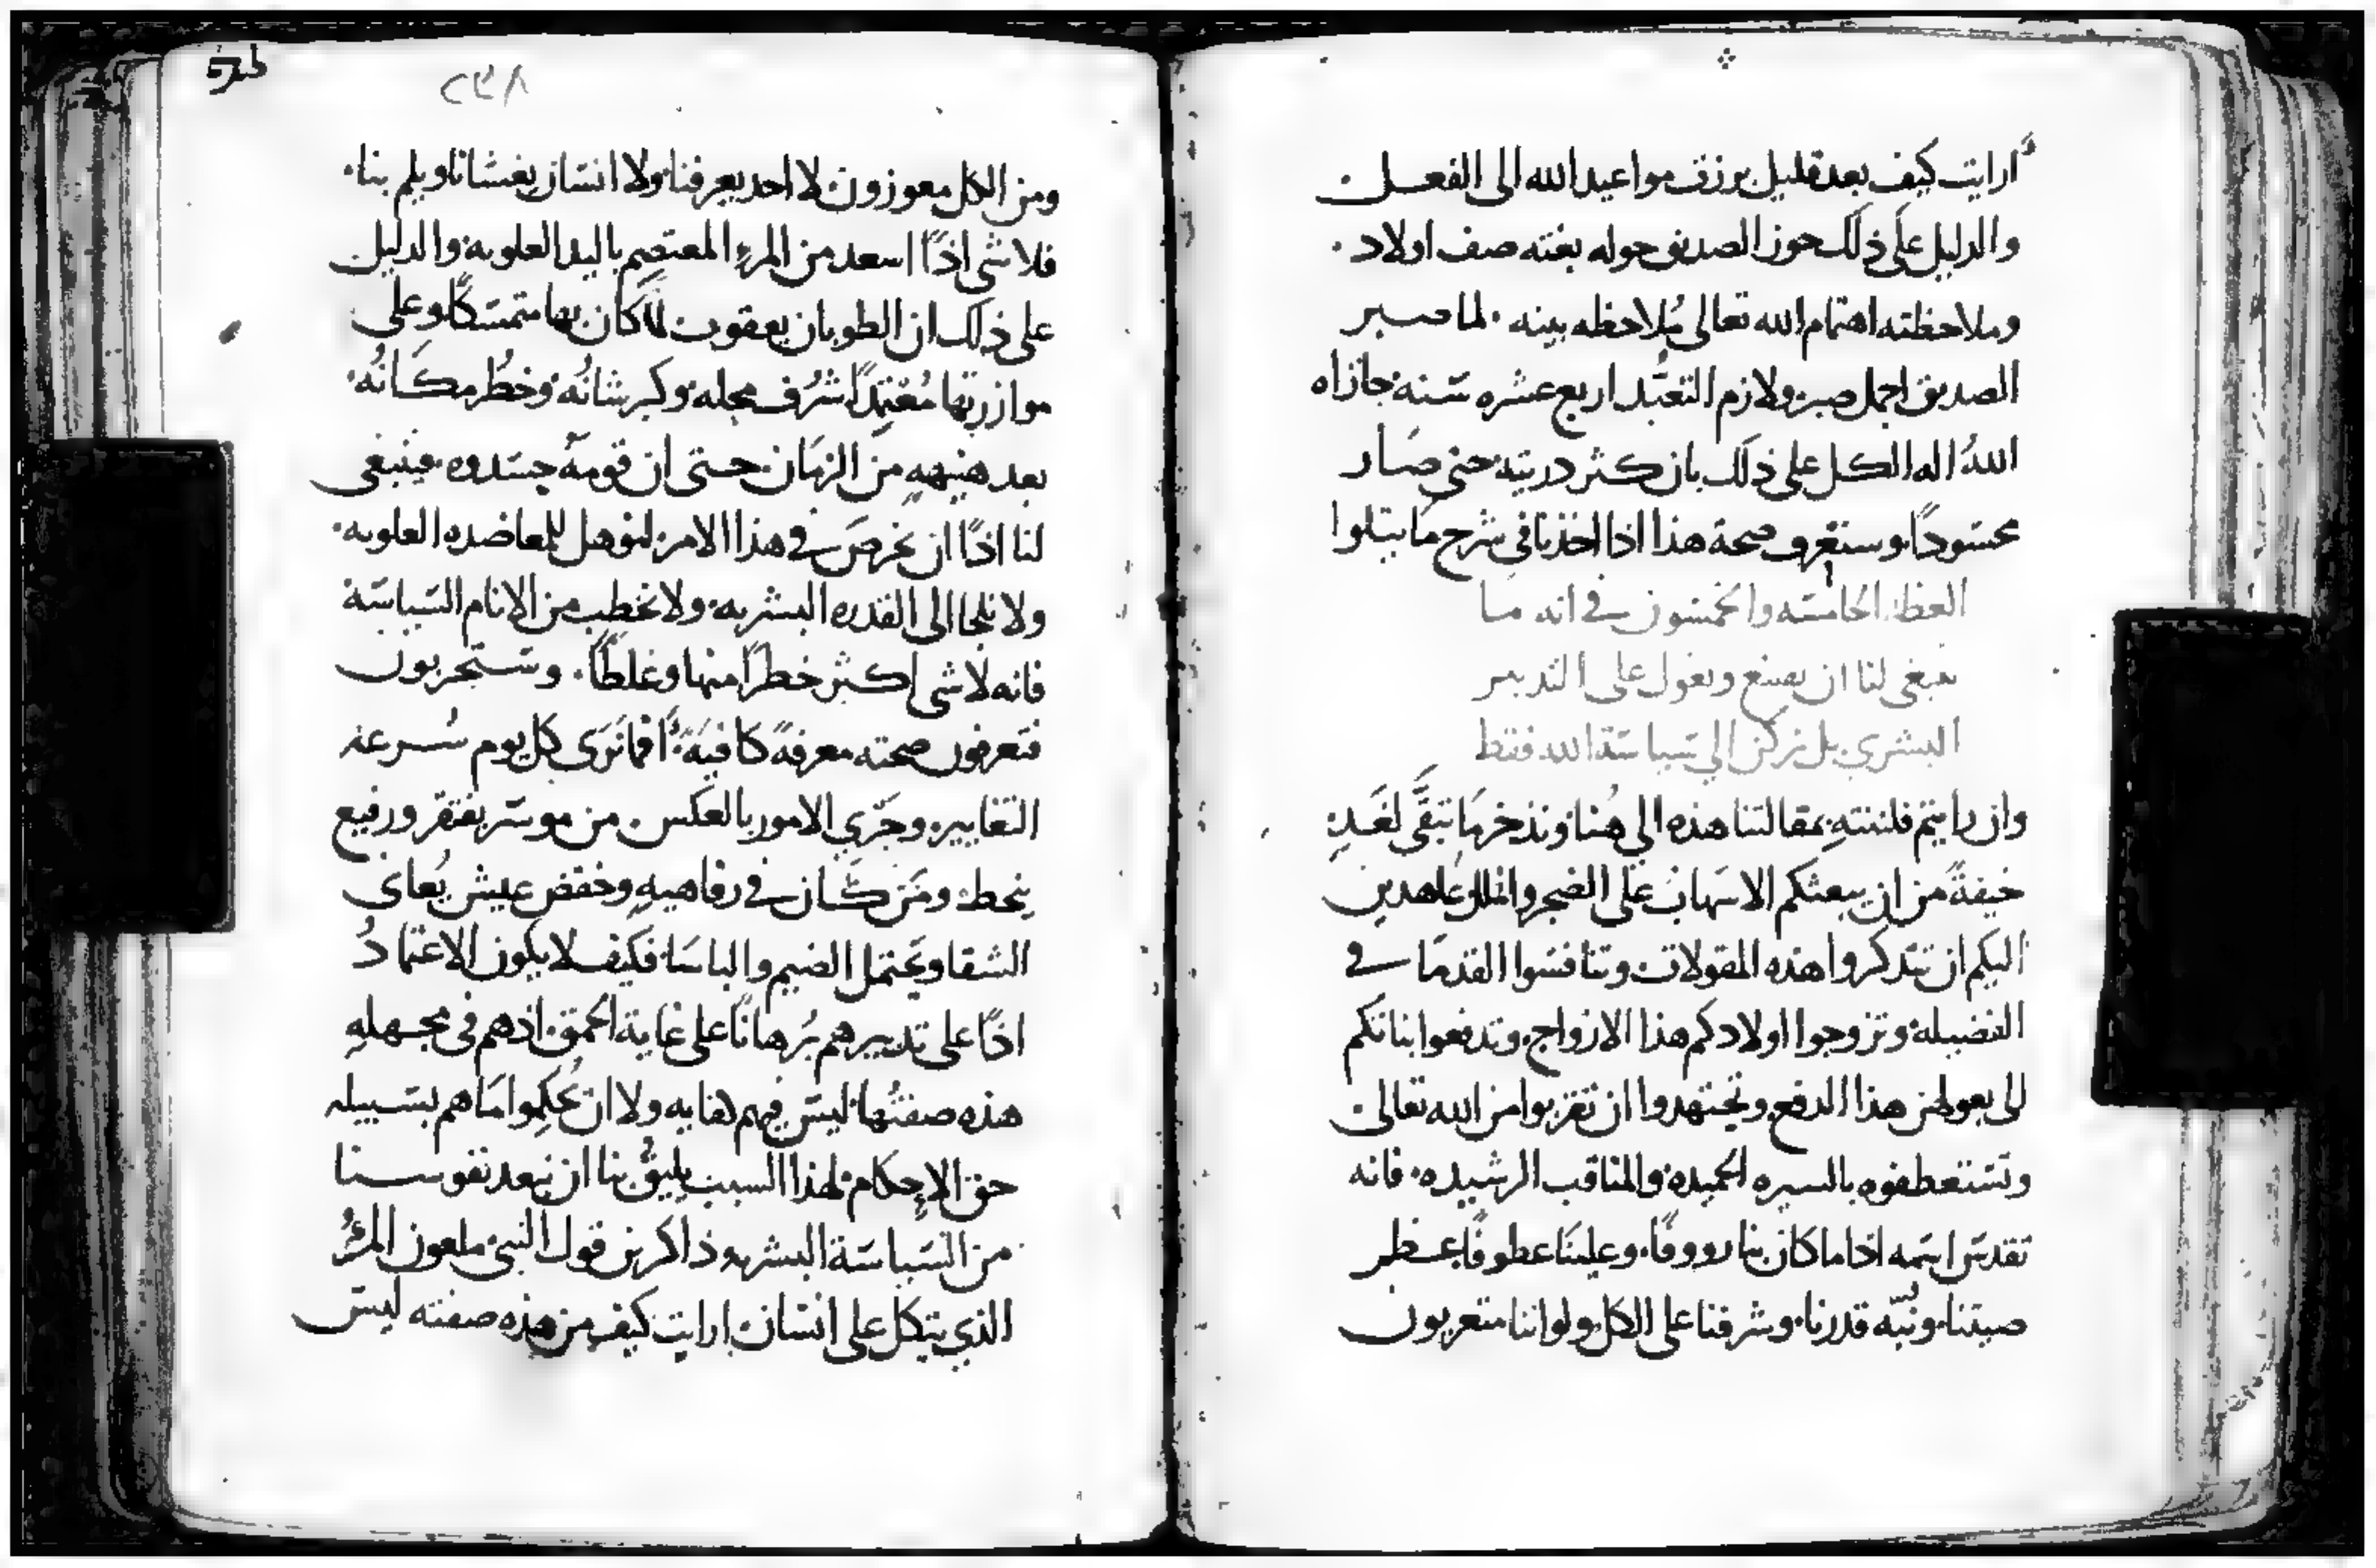 ارايت كيف بعد قليل برزت مواعيد الله الى الفعل
والدليل على ذلك حوز الصديق حوله بغته صف اولاد .
وملاحظته اهتمام الله تعالى مُلاحظه بينه . لما صبر
الصديق اجمل صبر ولازم التعبّد اربع عشره سَنه جازاه
اللهُ اله الكل على ذلك بان كثر دريته حتى صَار
محسَودًا وستعرف صحة هذا اذا اخذنا في شرح ما يتلوا
العظه الخامسَه والخمسَون في انه ما
ينبغي لنا ان يصنع ونعول على التدبير
البشري بل نركن الي سَياسَة الله فقط
وان رايتم فلننتهِ بمقالتنا هذه الي هُنا وندخر مَا تبَقَّى لغَدٍ
خيفةً من ان يبعثكم الاسَهاب على الضجر والملل عاهدين
اليكم ان تتدكروا هذه المقولات وتنافسَوا القدمَا في
الفضيله وتزوجوا اولادكم هذا الازواج وتدفعوا بناتكم
الى بعولهن هذا الدفع وتجتهدوا ان تقربوا من الله تعالى
وتسَتعطفوه بالسيره الحميده والمناقب الرشيده . فانه
تقدسَ اسَمه اذا ما كان بنا رووفًا وعلينَا عطوفًا عظم
صيتنا ونُبّه قدرنا وشرفنا على الكل ولو اننا متغربون
٢٣٨
ومن الكل معوزون لا احد يعرفنا ولا انسَان يغشانا ويلم بنا .
فلا شي اذًا اسعد من المرءِ المعتصِم باليد العلويه والدليل
على ذلك ان الطوبان يعقوب لما كان بها متمسَكًا وعلى
موازرتها مُعْتمِدًا شرُف محله وكبر شانُه وخطُر مكَانُه
بعد هنيهةٍ من الزمَان حتى ان قومهُ حسَدوه فينبغي
لنا اذًا ان نحرصَ في هذا الامر لنوهل للمعاضده العلويه .
ولا نلجا الى القدره البشريه ولا نخطب من الانام السَياسَة
فانه لا شي اكثر خطرًا منها وغلطًا . وسَتجربون
فتعرفون صحته معرفةً كافيَة أفما نرَى كل يوم سُرعة
التغايير وجَرَي الامور بالعكس من موسَر يفتقر ورفيع
ينحط ومَن كان في رفاهيهِ وخفض عيش يُعاني
الشقا ويحَتمل الضيم والباسَا فكيف لا يكون الاعتمادُ
اذًا على تدبيرهم بُرهانًا على غاية الحمق اذ هم في مجهلهِ
هذه صفتُها ليسَ فيهم كفايه ولا ان يُحكِموا مَا هم بسَبيله
حق الاِحكام لهذا السبب يليقُ بنا ان نبعد نفوسنا
من السَياسَة البشريه ذاكرين قول النبي ملعون المرءُ
الذي يتكل على انسَان ارايت كيف من هذه صفته ليسَ